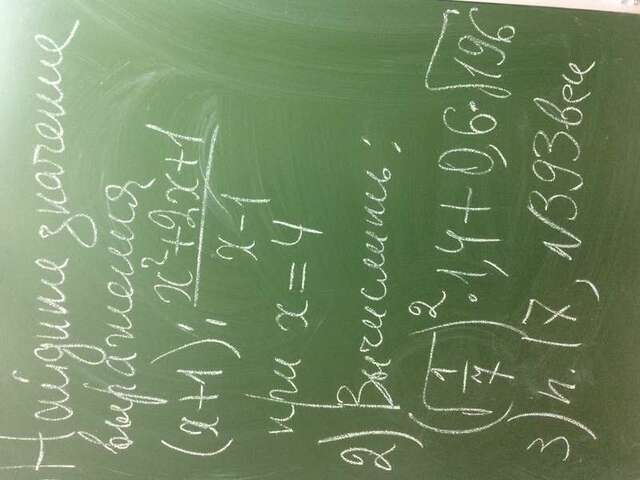 Найдите значение
выражения
(x+1) : \frac{x²+2x+1}{x-1}
при x = 4
2) Вычислить:
(\sqrt{\frac{1}{7}})² · 1,4 + 0,6 · \sqrt{196}
3) п. 17, №393 веч